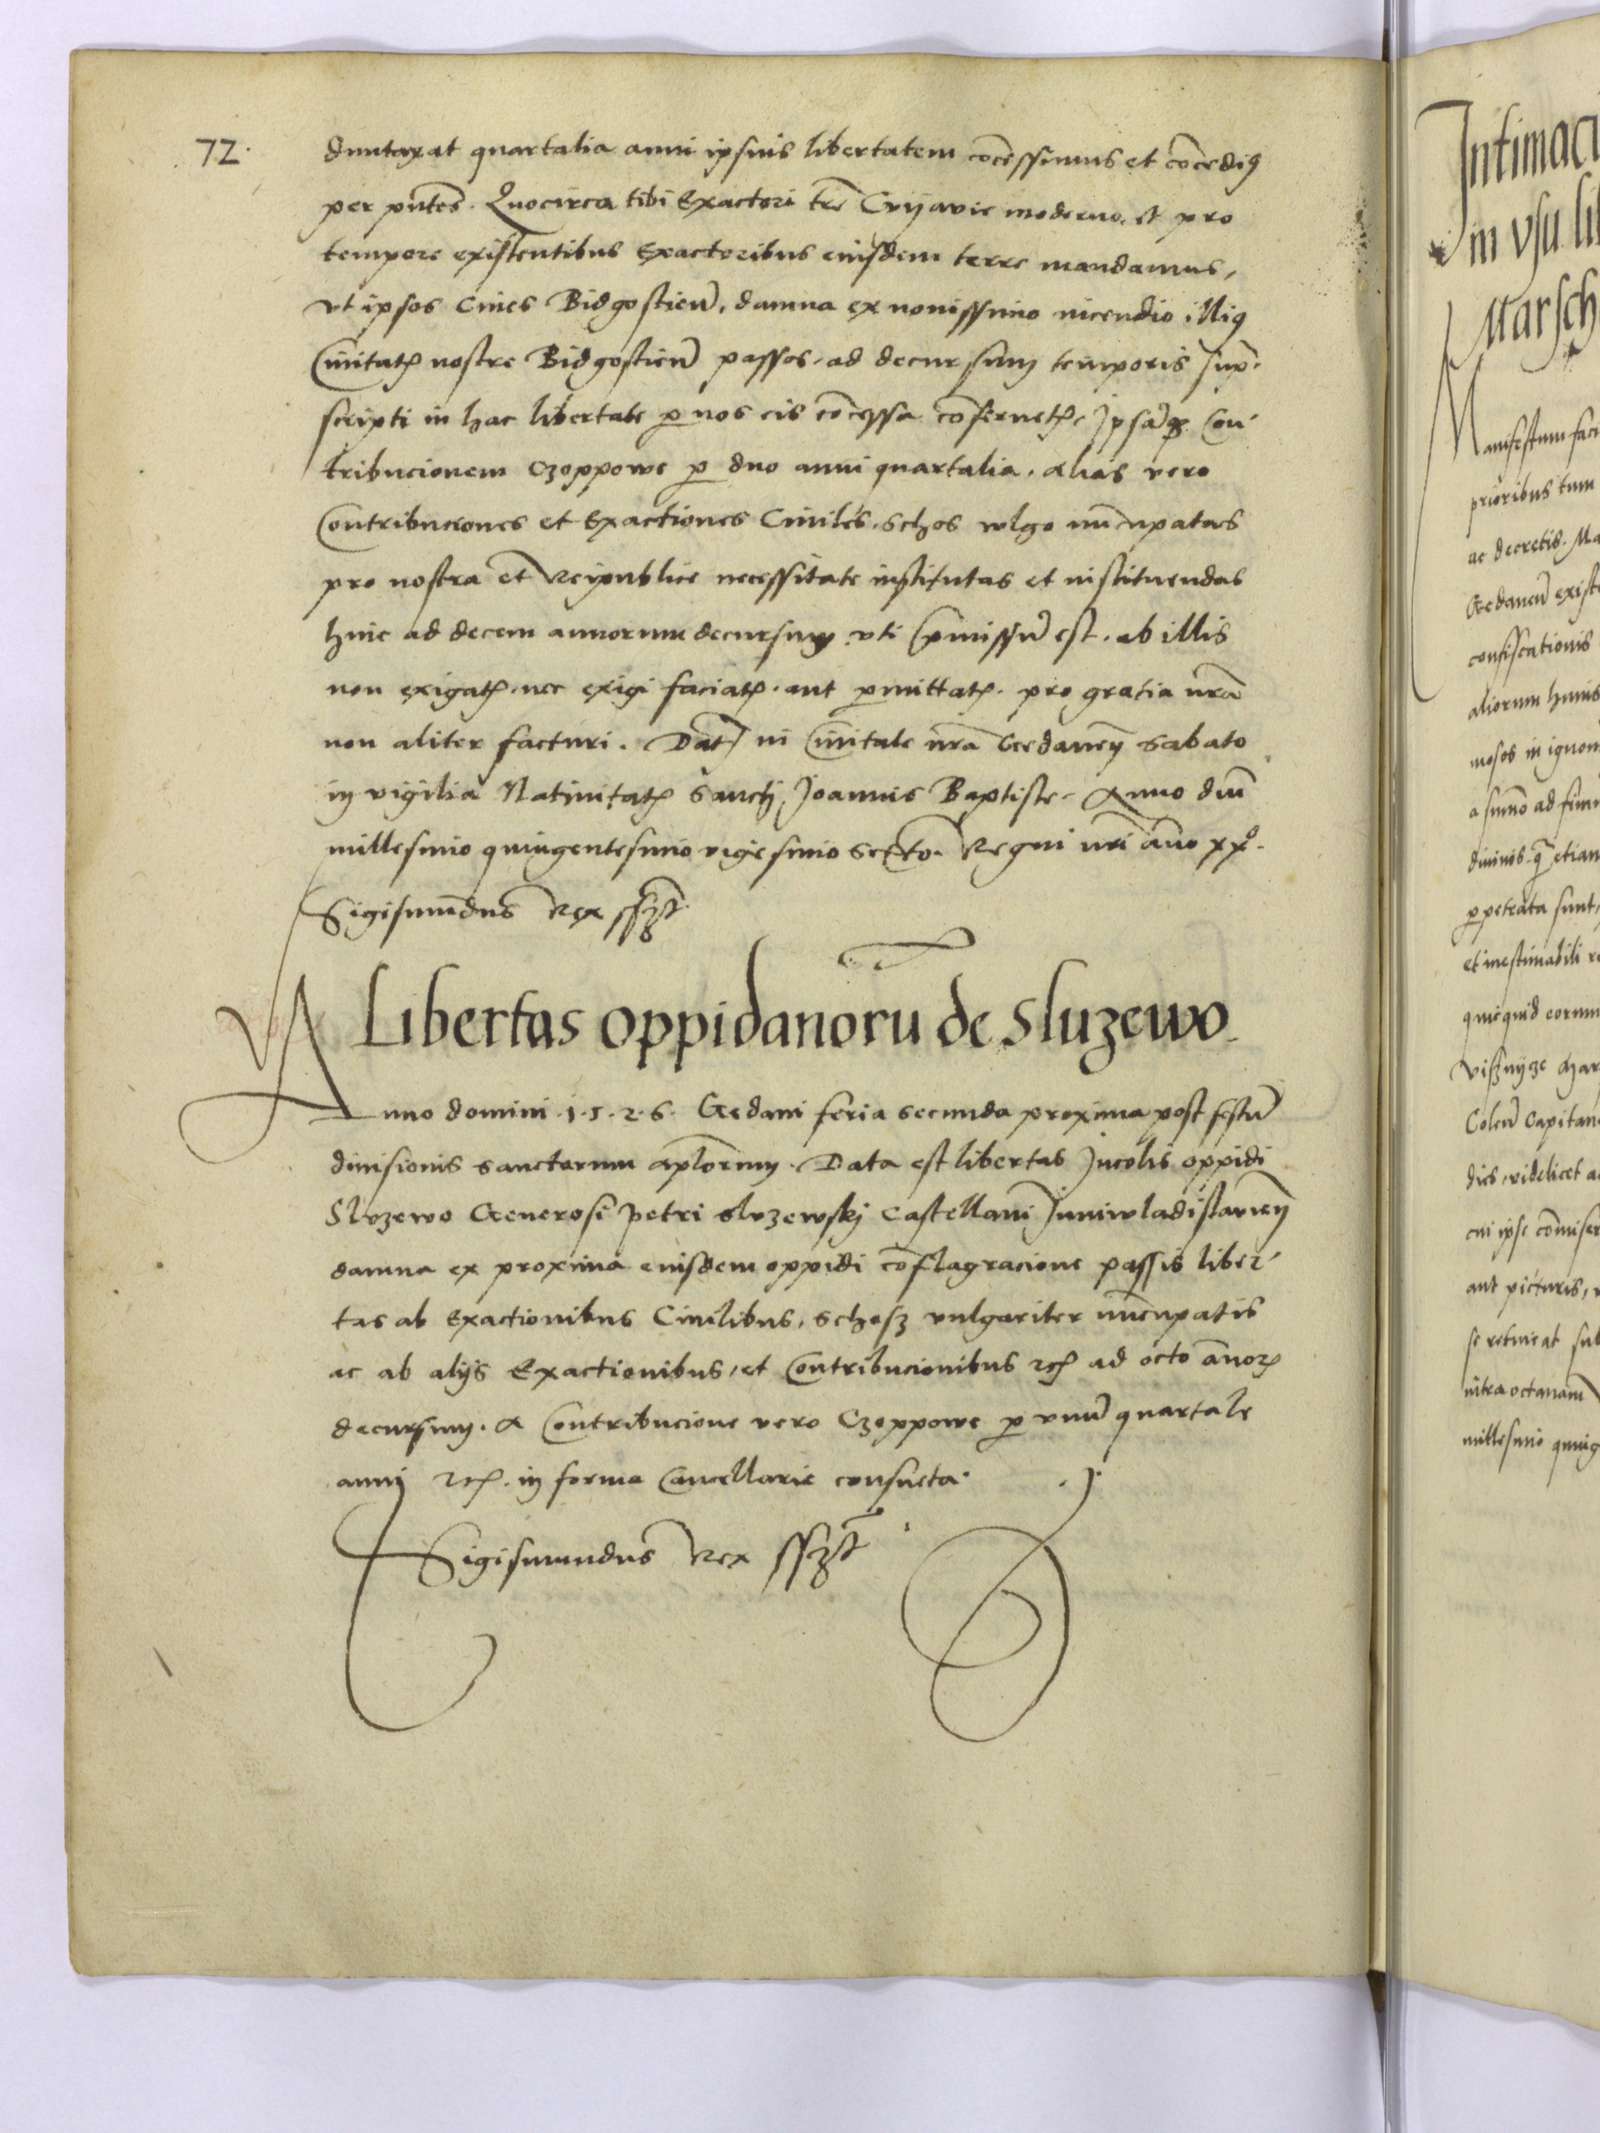 72.
duntaxat quartalia anni ipsius libertatem cōcessimus et cōcediꝫ
per pn̄tes. Quocirca tibi Exactori tr̄e Cuyavie moderno, et pro
tempore existentibus Exactoribus eiusdem terre mandamus,
vt ipsos Cives Bidgostien̄, damna ex novissimo incendio illiꝰ
Civitatꝭ nostre Bidgostien̄ passos, ad decursum temporis sup̄-
scripti in hac libertate ꝑ nos eis cōcessa cōservetꝭ, Ipsāqꝫ Con-
tribucionem Czoppowe ꝑ duo anni quartalia. Alias vero
Contribuciones et Exactiones Civiles, schos vulgo nūcupatas
pro nostra et Reipublice necessitate institutas et instituendas
hinc ad decem annorum decursum, vti p̄missū est, ab illis
non exigatꝭ, nec exigi faciatꝭ, aut ꝑmittatꝭ, pro gratia nr̄a
non aliter facturi. Dat̄ in Civitate nr̄a Gedanen̄ Sabato
in vigilia Nativitatꝭ Sancti Joannis Baptiste. Anno dn̄i
millesimo quingentesimo vigesimo sexto. Regni nr̄i an̄o xxº.
Sigismūdus Rex sszt
Libertas oppidanorū de Sluzewo.
Anno domini .1.5.2.6. Gedani feria secunda proxima post festū
divisionis sanctorum apl̄orum. Data est libertas Incolis oppidi
Sluzewo Generosi Petri Sluzewski Castellani Iuniwladislavien̄
damna ex proxima eiusdem oppidi cōflagracione passis liber-
tas ab Exactionibus Civilibus, schosz vulgariter nūcupatis
ac ab alijs Exactionibus, et Contribucionibus ⁊cꝭ ad octo an̄oꝝ
decursum. A Contribucione vero Czoppowe ꝑ vnū quartale
anni ⁊cꝭ. in forma Cancellarie consueta.
Sigismundus Rex sszt
Intimaci
in vsu li
Marsch
Manifestum faci
prioribus tum
ac decretis. Ma
Gedanen̄ existe
confiscationis
aliorum huius
mosos in ignom
a summo ad fim
divinis. q̄ etiam
ꝑpetrata sunt,
et inestimabili r
quicquid eorum
Coleñ Capitan
dies, videlicet a
cui ipse cōmiser
aut picturis,
se retineat sub
intra octavam
millesimo quing